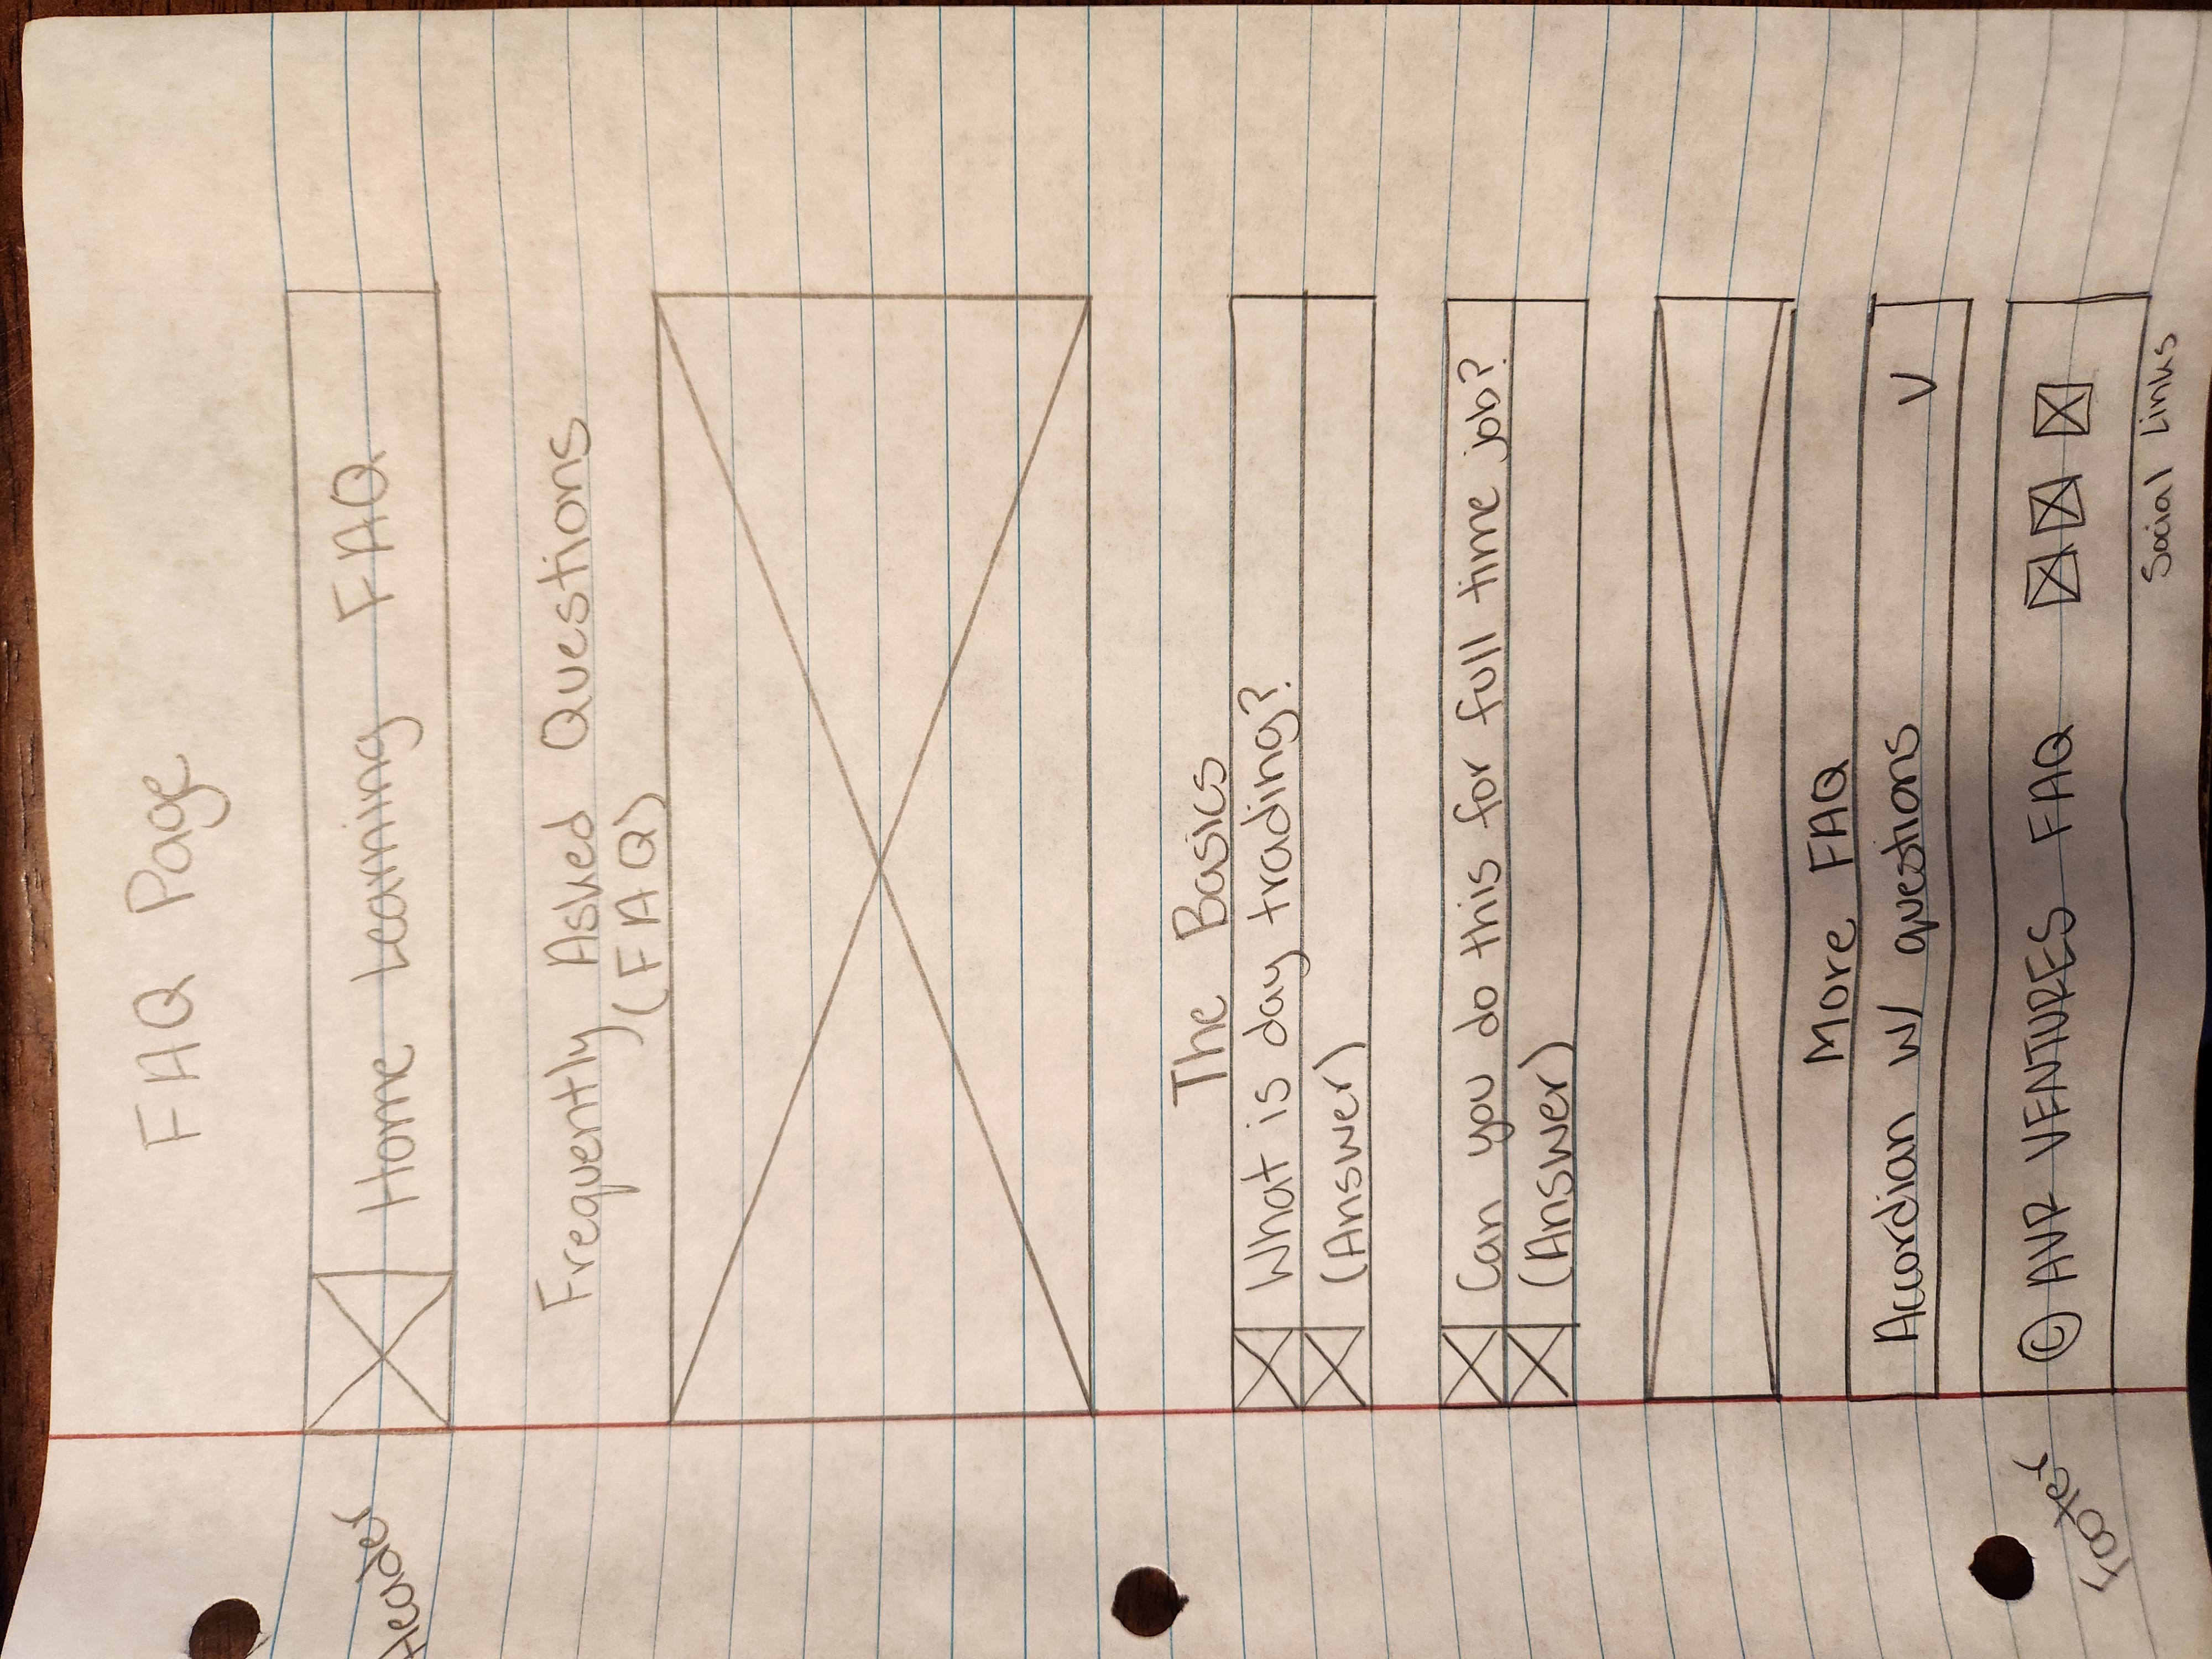 FAQ Page
Header
Home Learning FAQ
Frequently Asked Questions
(FAQ)
The Basics
What is day trading?
(Answer)
Can you do this for full time job?
(Answer)
More FAQ
Accordian w/ questions V
© AVR VENTURES FAQ
Footer
Social Links